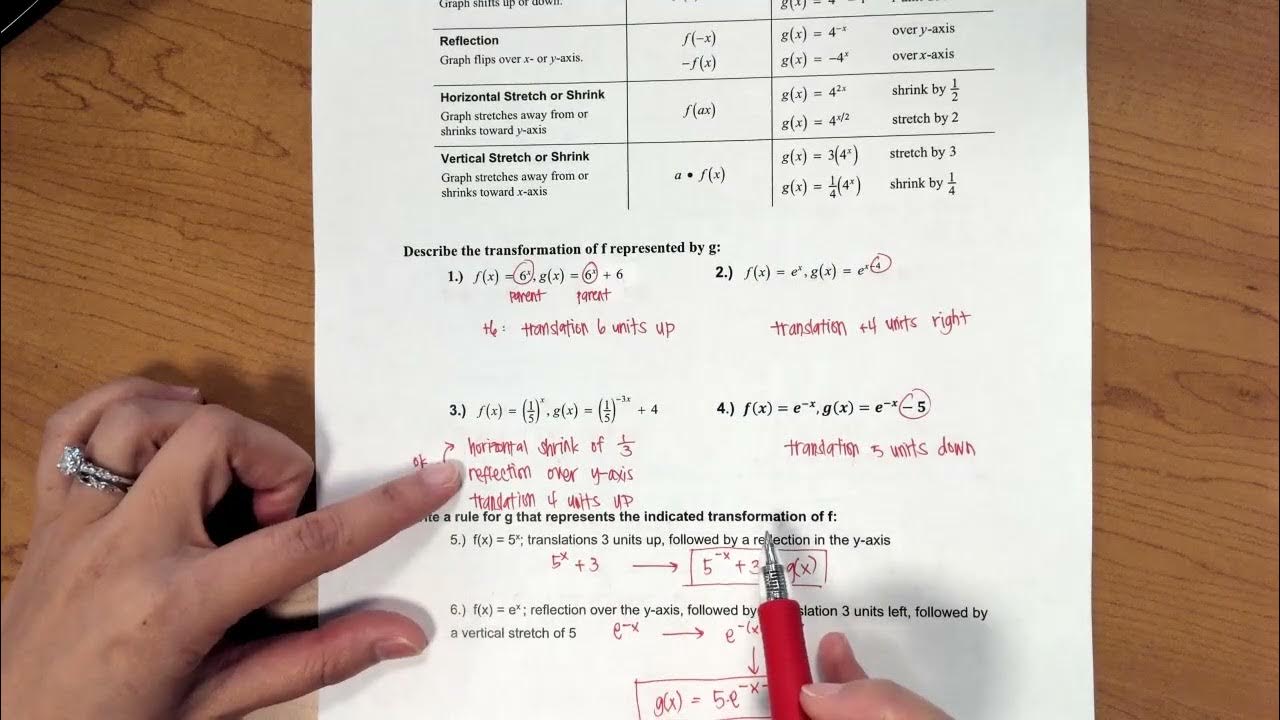 Graph shifts up or down.
Reflection f(−x) g(x) = 4^−x over y-axis
Graph flips over x- or y-axis. −f(x) g(x) = −4^x over x-axis
Horizontal Stretch or Shrink g(x) = 4^2x shrink by 1/2
Graph stretches away from or f(ax)
shrinks toward y-axis g(x) = 4^x/2 stretch by 2
Vertical Stretch or Shrink g(x) = 3(4^x) stretch by 3
Graph stretches away from or a • f(x)
shrinks toward x-axis g(x) = 1/4(4^x) shrink by 1/4
Describe the transformation of f represented by g:
1.) f(x) = 6^x, g(x) = 6^x + 6 2.) f(x) = e^x, g(x) = e^x−4
parent parent
+6: translation 6 units up translation +4 units right
3.) f(x) = (1/5)^x, g(x) = (1/5)^−3x + 4 4.) f(x) = e^−x, g(x) = e^−x − 5
horizontal shrink of 1/3 translation 5 units down
reflection over y-axis
translation 4 units up
a rule for g that represents the indicated transformation of f:
5.) f(x) = 5^x; translations 3 units up, followed by a reflection in the y-axis
5^x + 3 → 5^−x + 3 g(x)
6.) f(x) = e^x; reflection over the y-axis, followed by 3 units left, followed by
a vertical stretch of 5 e^−x → e^−(x
↓
g(x) = 5·e^−x−